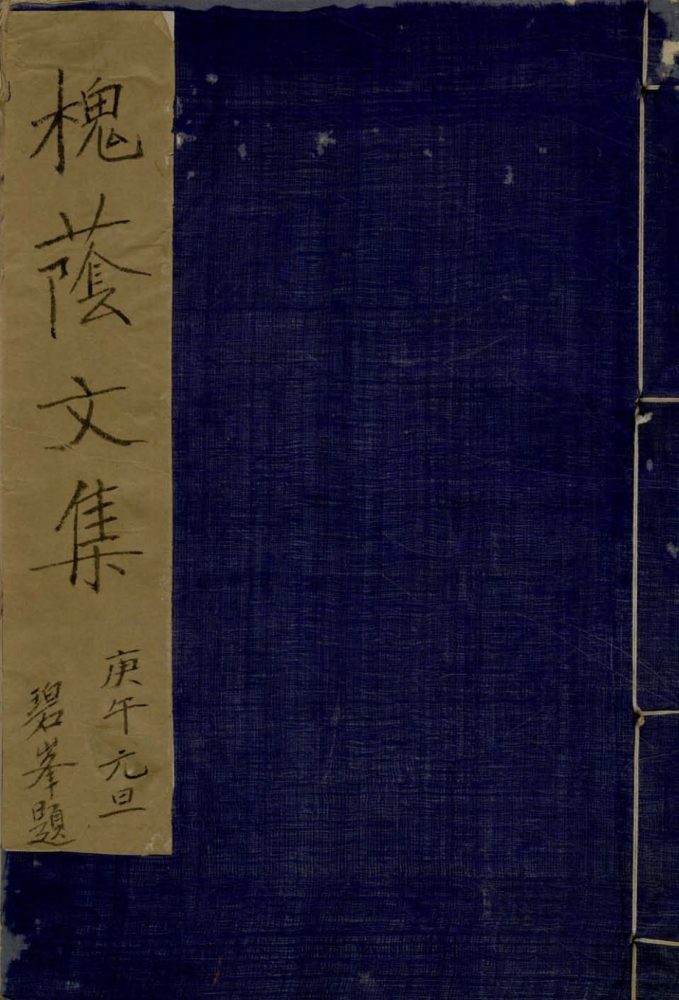 槐蔭文集
庚午元旦
碧峯題